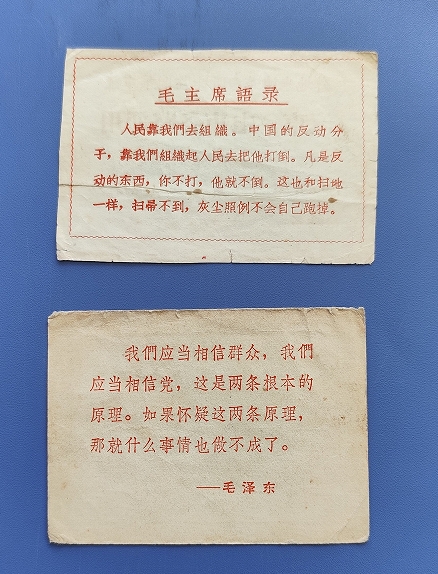 毛主席語录
人民靠我們去組織。中国的反动分
子，靠我們組織起人民去把他打倒。凡是反
动的东西，你不打，他就不倒。这也和扫地
一样，扫帚不到，灰尘照例不会自己跑掉。
我們应当相信群众，我們
应当相信党，这是两条根本的
原理。如果怀疑这两条原理，
那就什么事情也做不成了。
——毛泽东